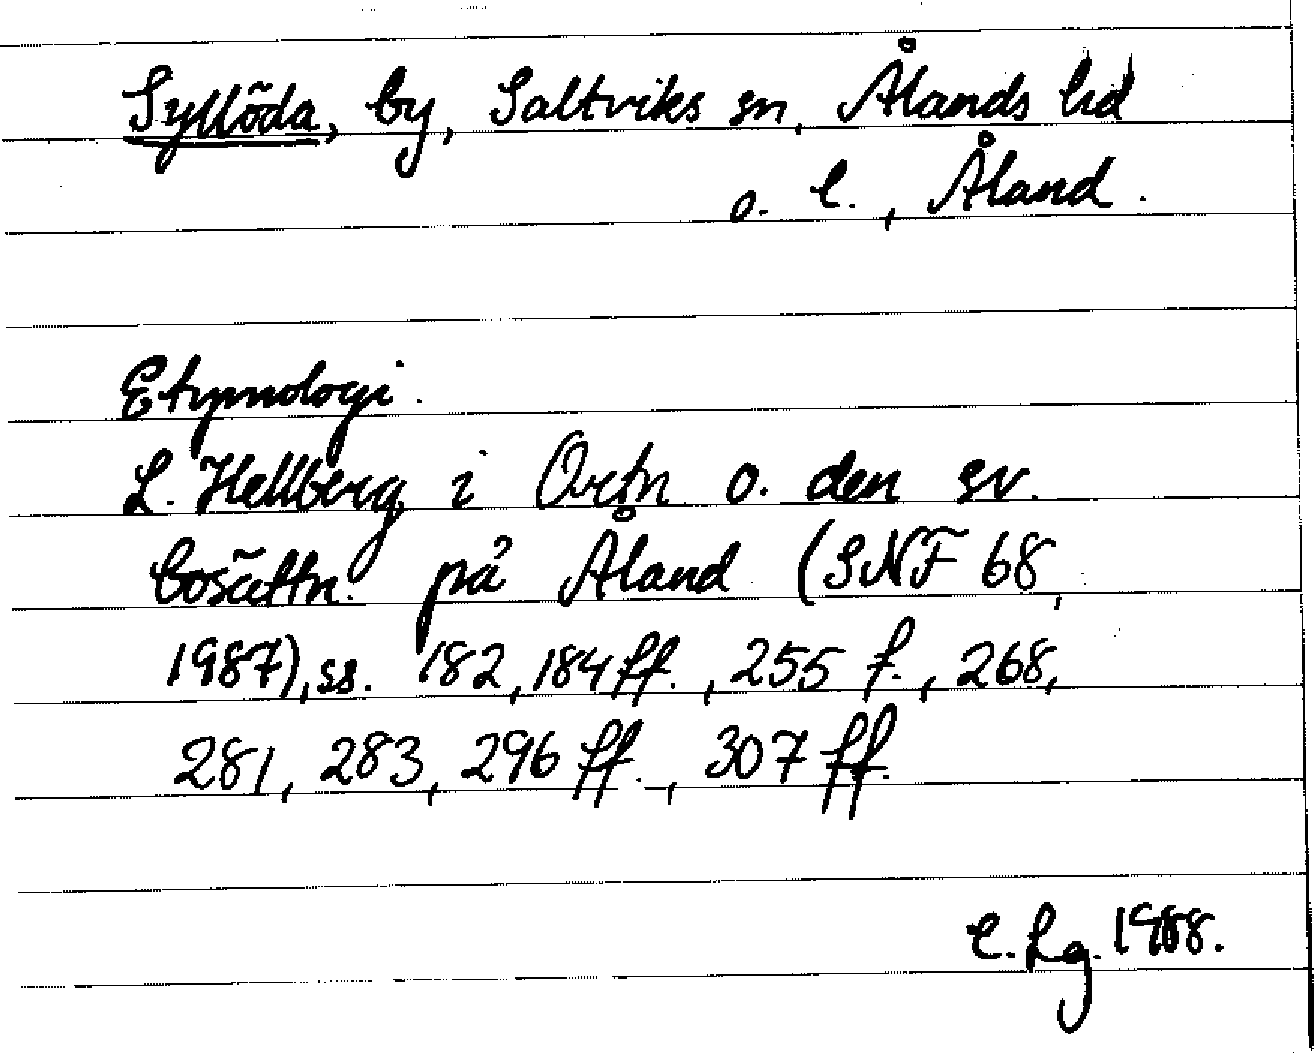 Syllöda, by, Saltviks sn, Ålands hd
o. l., Åland.
Etymologi.
L. Hellberg i Ortn o. den sv.
bosättn. på Åland (SNF 68,
1987), ss. 182, 184 ff., 255 f., 268,
281, 283, 296 ff., 307 ff.
C. Lg. 1988.